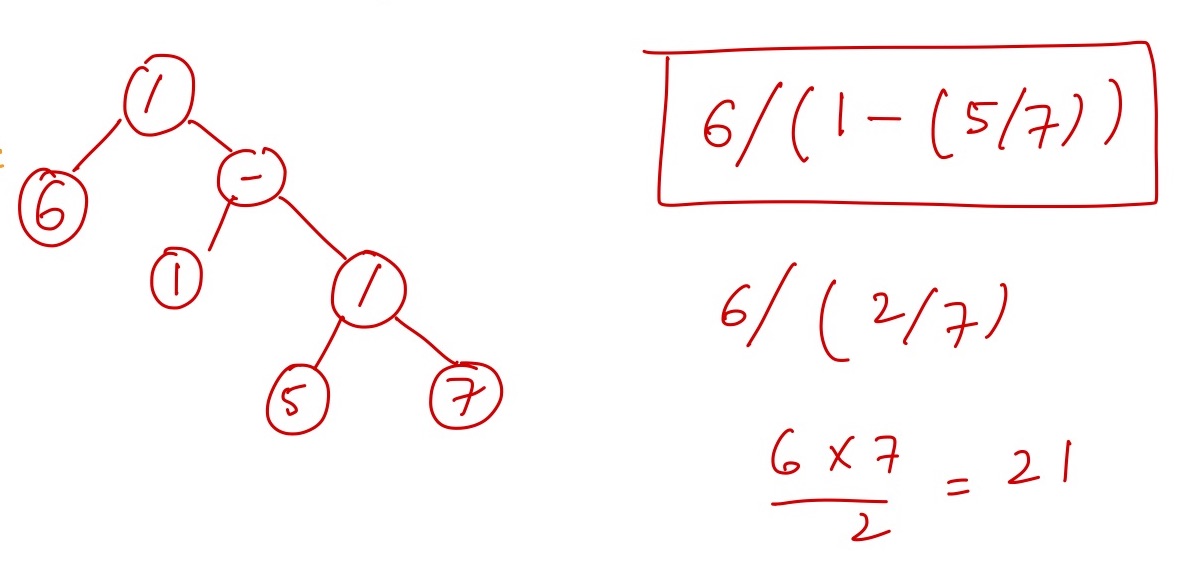 /
6
-
1
/
5
7
6/(1-(5/7))
6/(2/7)
6 x 7
2
= 21